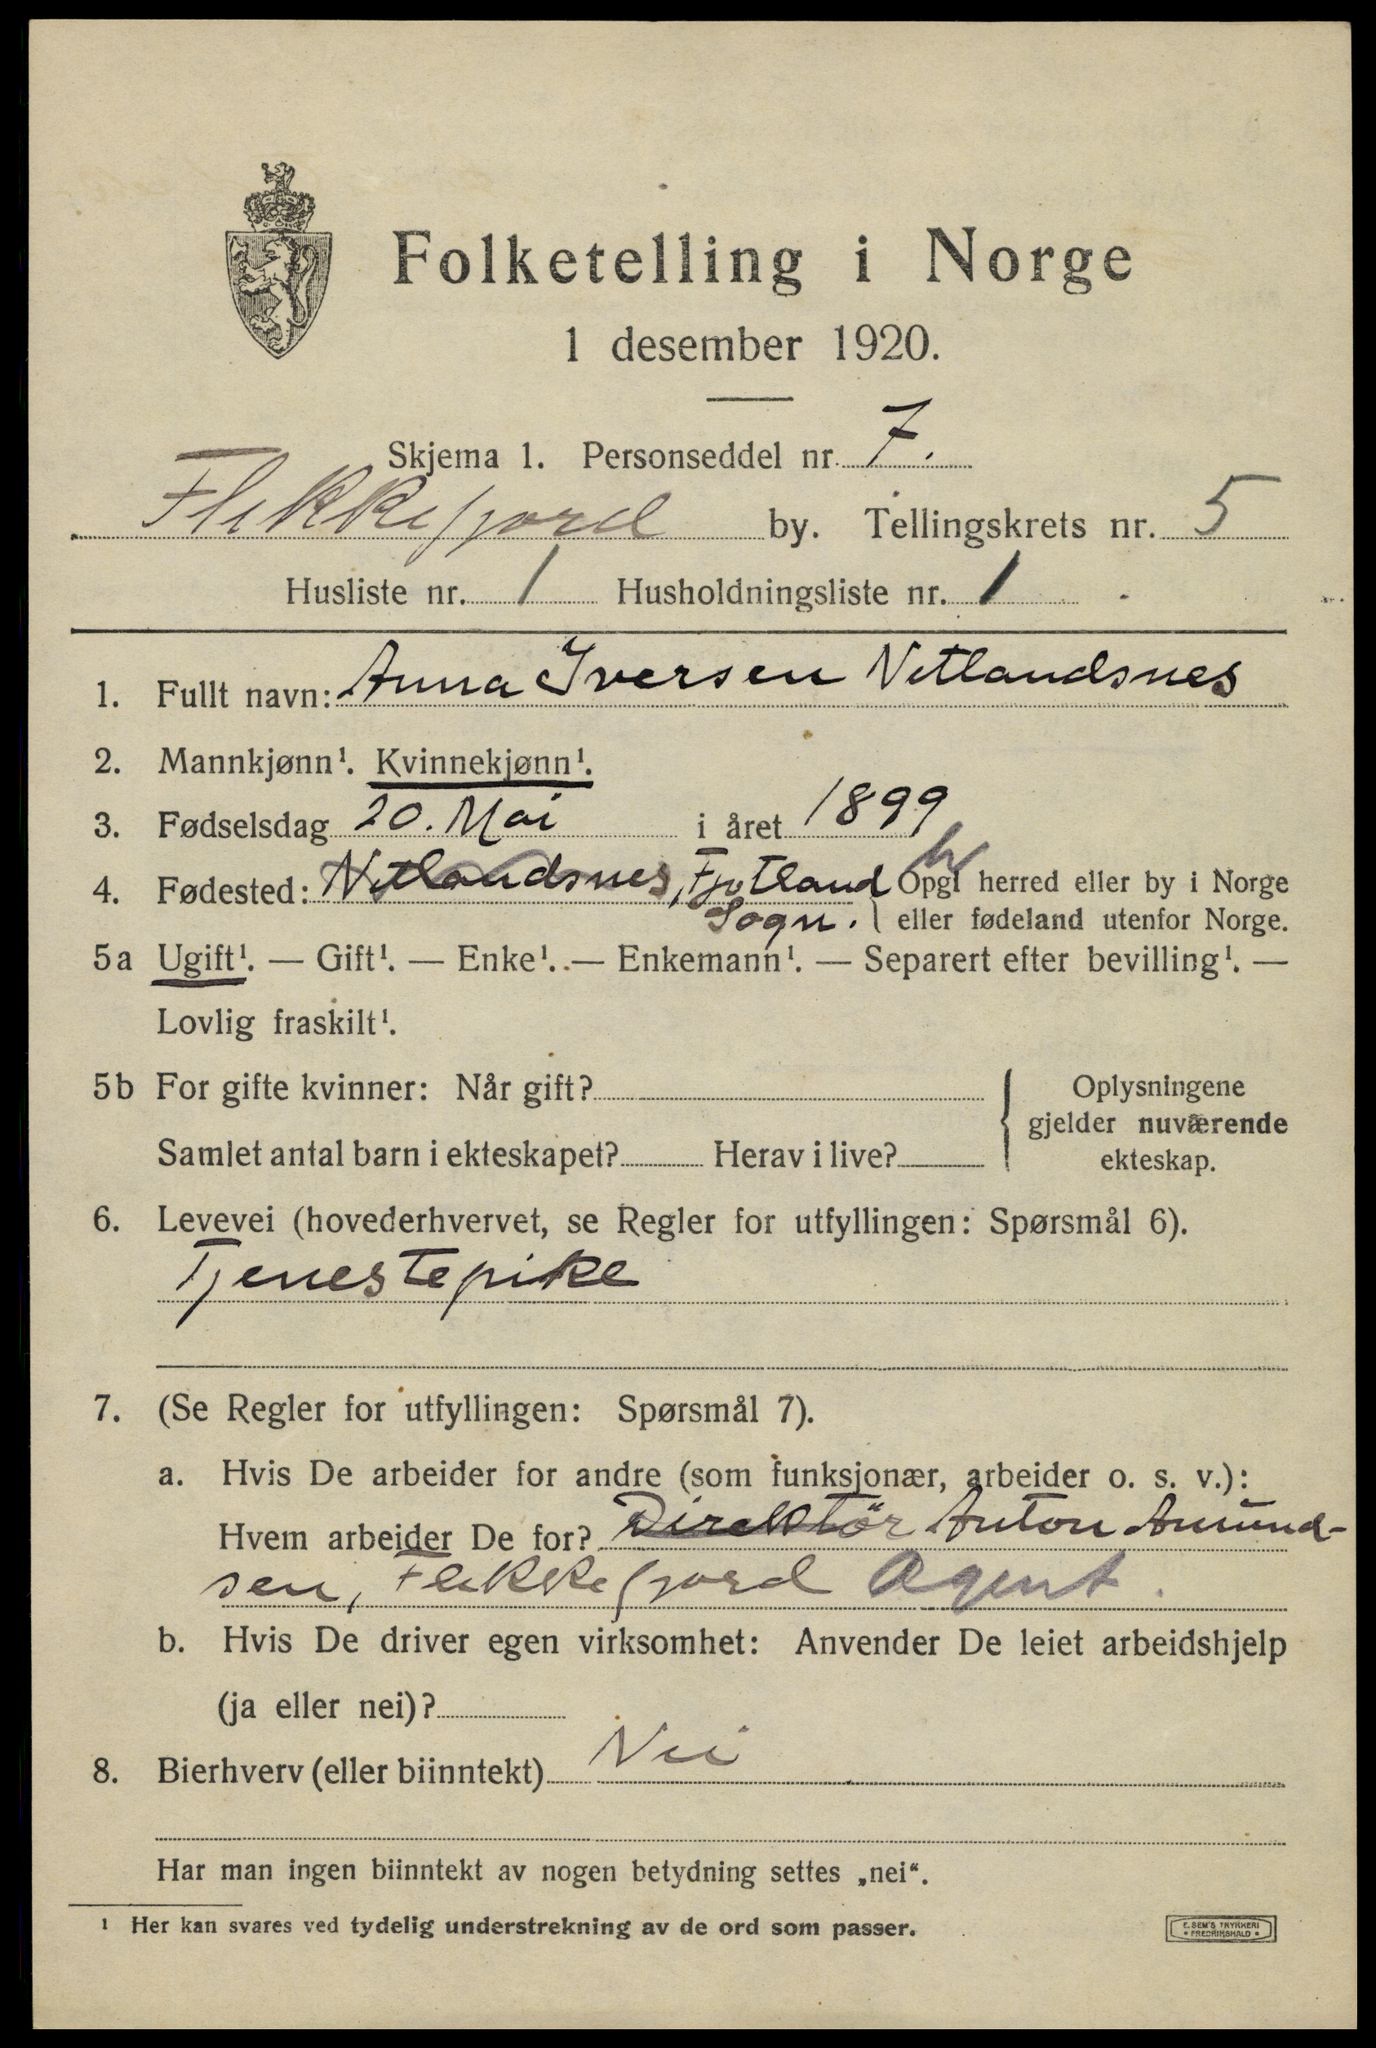 Folketelling i Norge
1 desember 1920.
Skjema 1. Personseddel nr. 7.
Flekkefjord by. Tellingskrets nr. 5
Husliste nr. 1 Husholdningsliste nr. 1
1. Fullt navn: Anna Iversen Netlandsnes
2. Mannkjønn¹. Kvinnekjønn¹.
3. Fødselsdag 20. Mai i året 1899
4. Fødested: Netlandsnes, Fjotland Opgi herred eller by i Norge
Sogn. eller fødeland utenfor Norge.
5a Ugift¹. — Gift¹. — Enke¹. — Enkemann¹. — Separert efter bevilling¹. —
Lovlig fraskilt¹.
5b For gifte kvinner: Når gift? Oplysningene
gjelder nuværende
Samlet antal barn i ekteskapet? Herav i live? ekteskap.
6. Levevei (hovederhvervet, se Regler for utfyllingen: Spørsmål 6).
Tjenestepike
7. (Se Regler for utfyllingen: Spørsmål 7).
a. Hvis De arbeider for andre (som funksjonær, arbeider o. s. v.):
Hvem arbeider De for? Direktör Anton Amund-
sen, Flekkefjord Agent.
b. Hvis De driver egen virksomhet: Anvender De leiet arbeidshjelp
(ja eller nei)?
8. Bierhverv (eller biinntekt) Nei
Har man ingen biinntekt av nogen betydning settes „nei“.
¹ Her kan svares ved tydelig understrekning av de ord som passer.
E. SEM'S TRYKKERI
• FREDRIKSHALD •